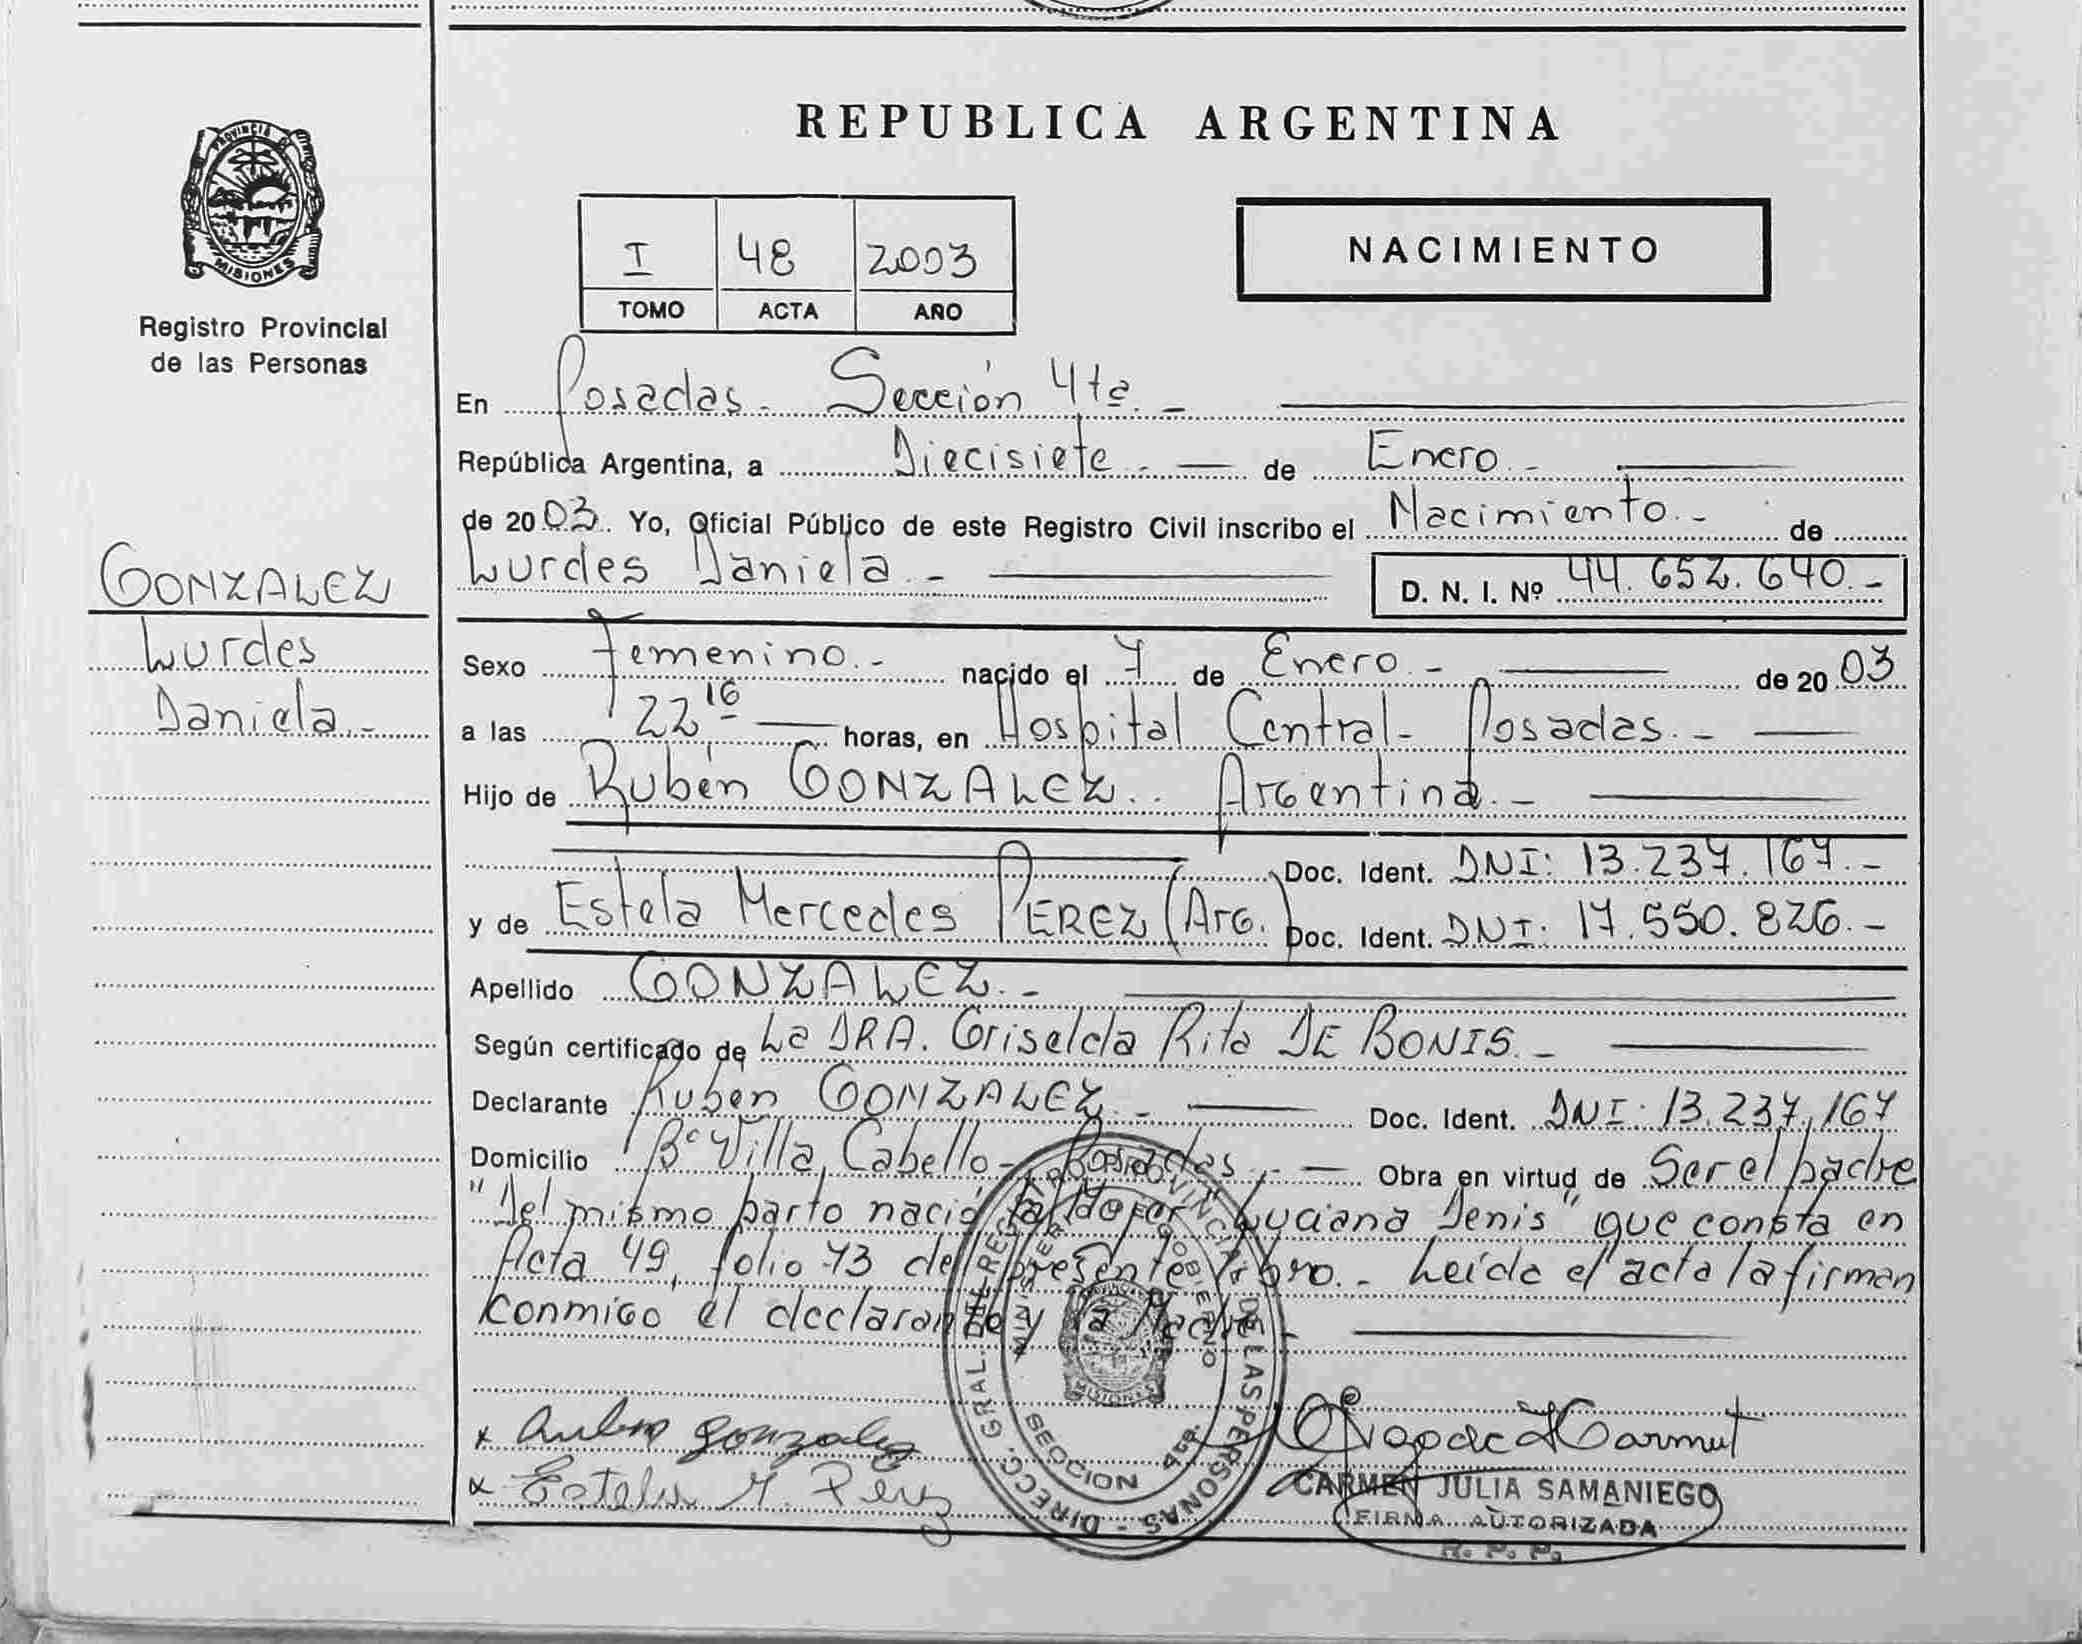 REPUBLICA ARGENTINA
PROVINCIA DE
MISIONES
Registro Provincial
de las Personas
I 48 2003
TOMO ACTA AÑO
NACIMIENTO
En Posadas.- Sección 4ta.-
República Argentina, a Diecisiete.- de Enero.-
de 2003. Yo, Oficial Público de este Registro Civil inscribo el Nacimiento.- de
Lurdes Daniela.- D. N. I. Nº 44.652.640.-
GONZALEZ
Lurdes
Daniela.-
Sexo Femenino.- nacido el 7 de Enero.- de 2003
a las 22 16 horas, en Hospital Central- Posadas.-
Hijo de Rubén GONZALEZ.. Argentina.-
Doc. Ident. DNI: 13.237.167.-
y de Estela Mercedes PEREZ (Arg.) Doc. Ident. DNI: 17.550.826.-
Apellido GONZALEZ.-
Según certificado de La DRA. Griselda Rita DE BONIS.-
Declarante Rubén GONZALEZ.- Doc. Ident. DNI: 13.237.167
Domicilio Bº Villa Cabello- Posadas.- Obra en virtud de Ser el padre
"Del mismo parto nació la Menor "Luciana Denis" que consta en
Acta 49, folio 73 del presente libro.- Leída el acta la firman
conmigo el declarante y la Madre-
x Ruben Gonzalez
x Estela M. Perez
DIRECC. GRAL. DEL REGISTRO PROVINCIAL DE LAS PERSONAS -
MINISTERIO DE GOBIERNO
MISIONES
SECCION 4ta.
CARMEN JULIA SAMANIEGO
FIRMA AUTORIZADA
R. P. P.